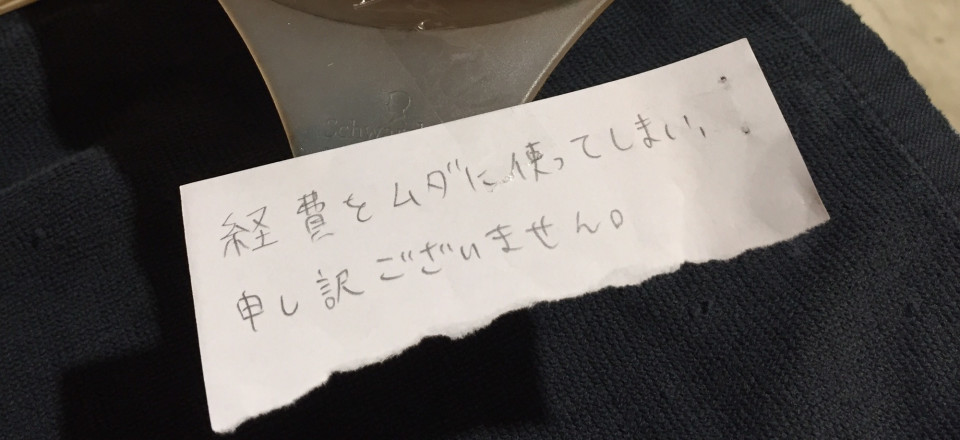 経費をムダに使ってしまい、
申し訳ございません。